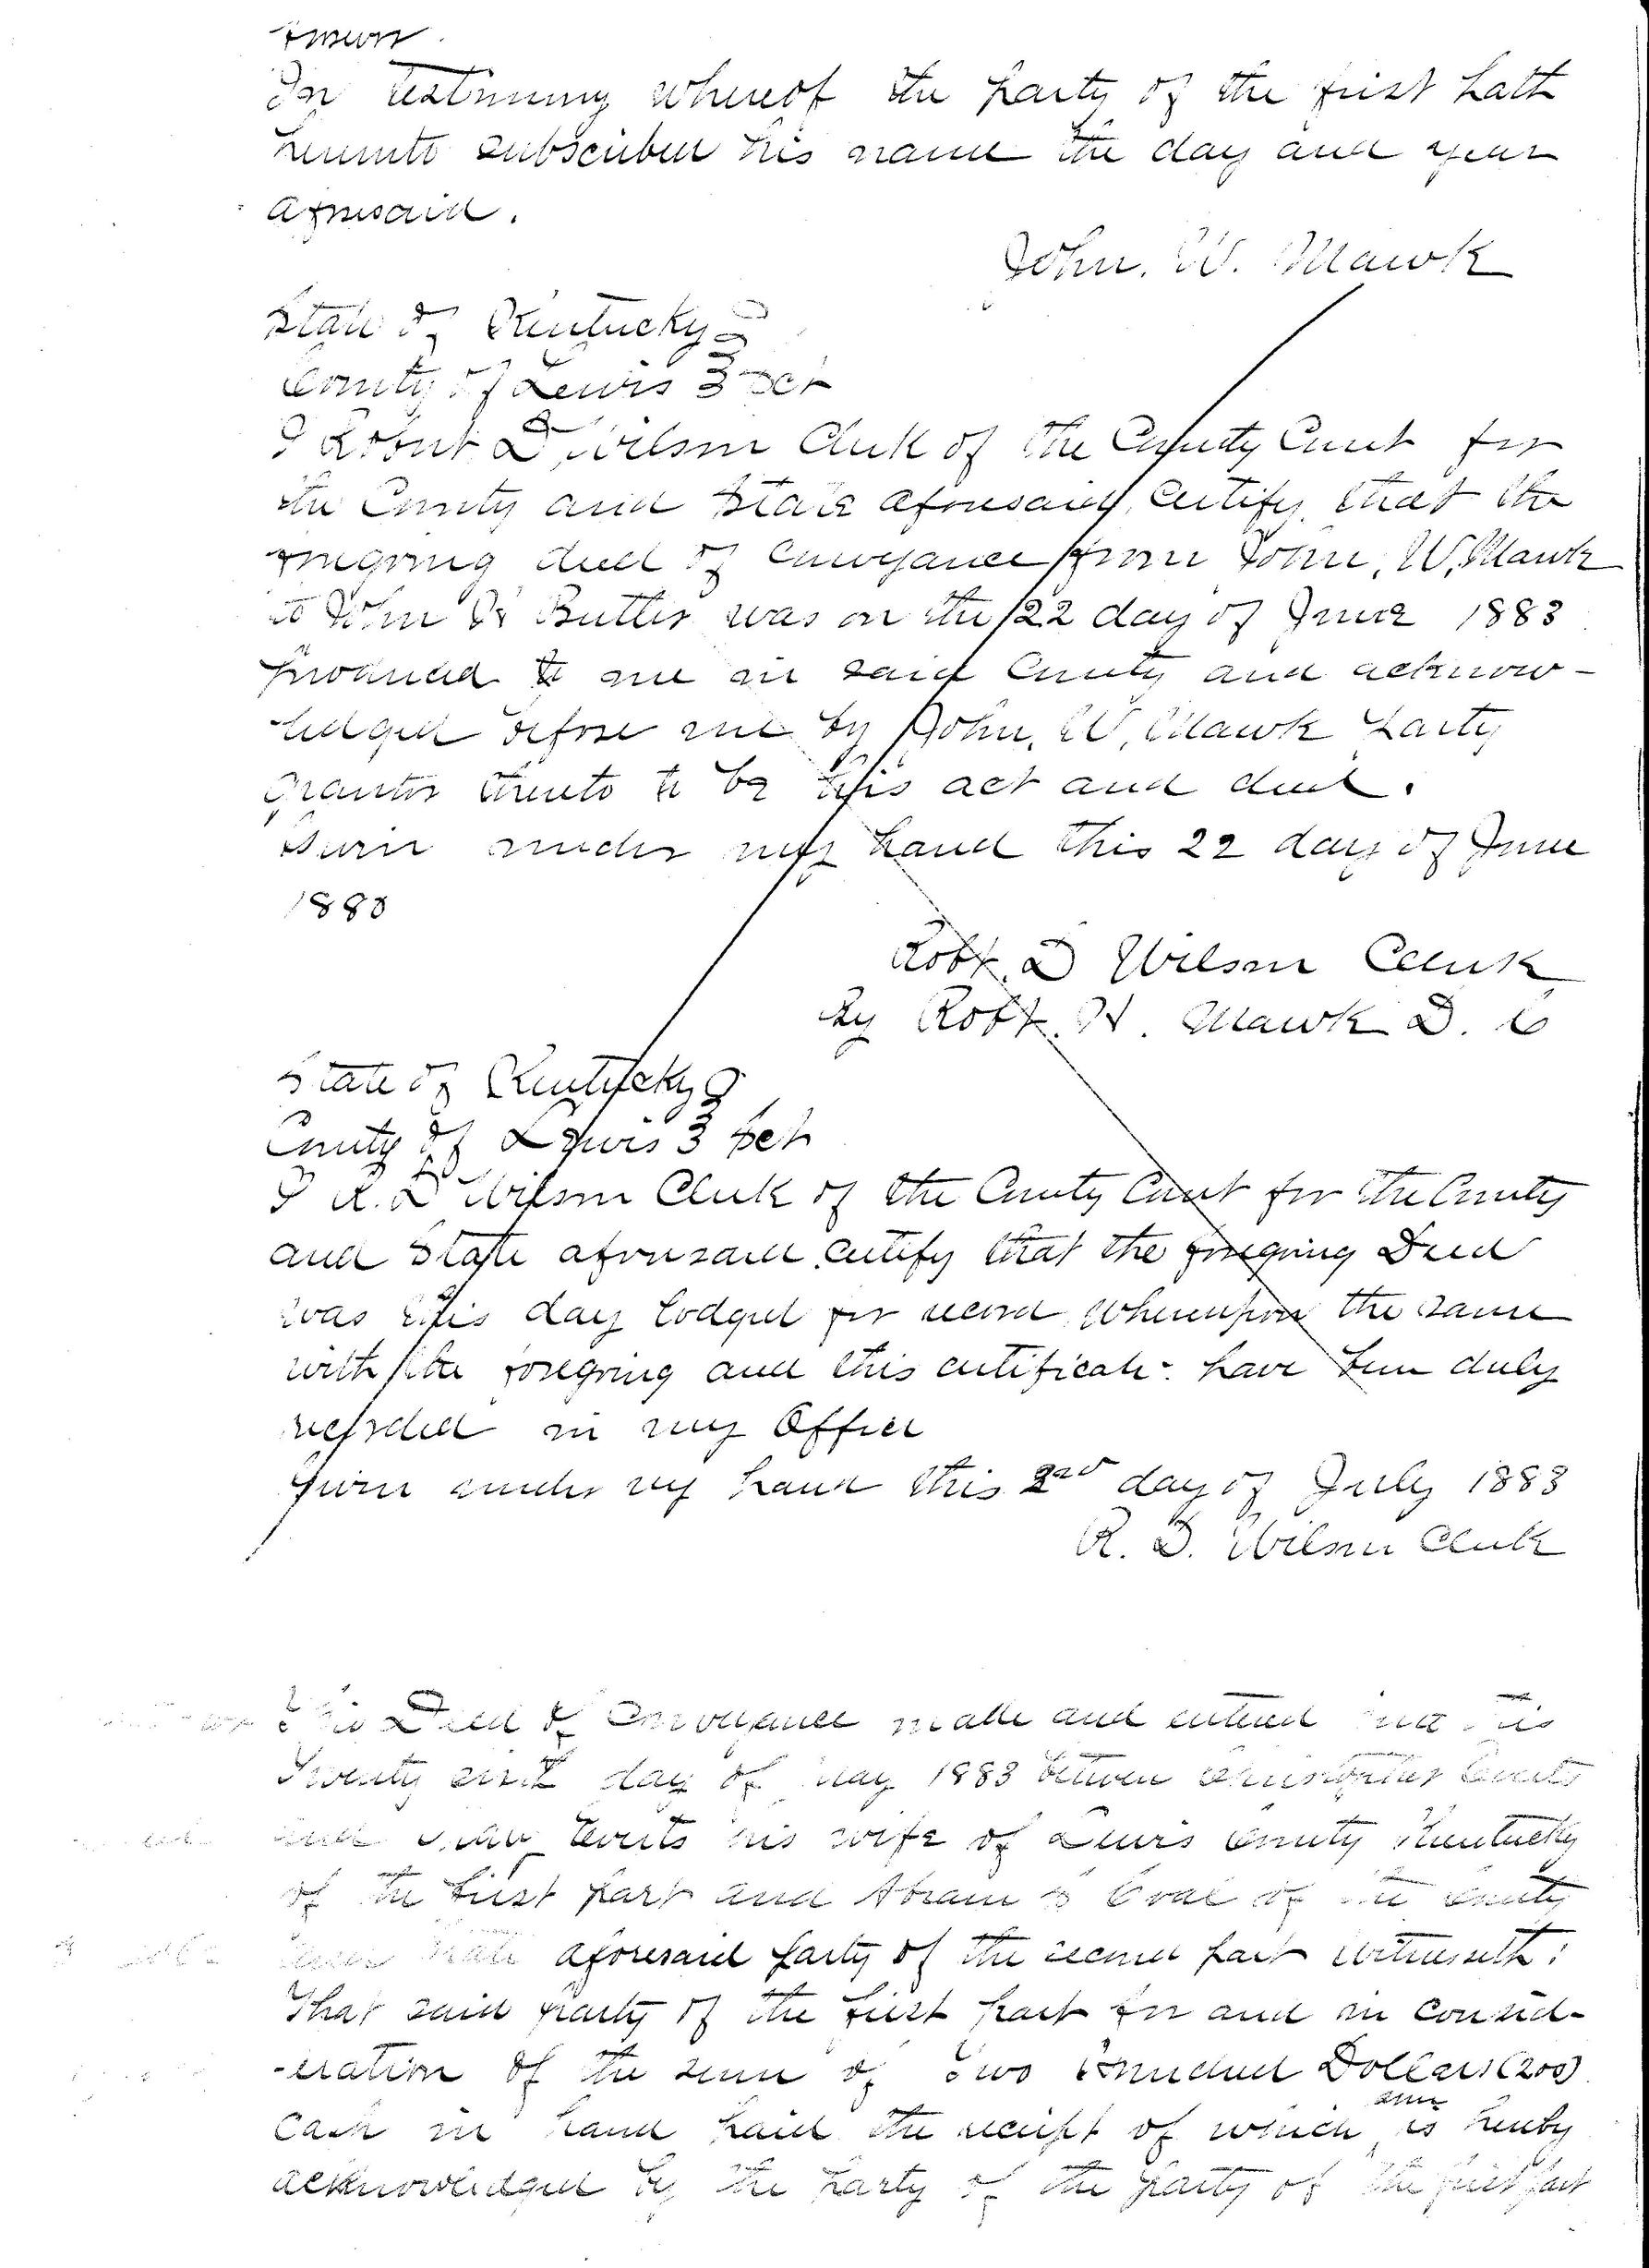 forever.
In testimony whereof the party of the first hath
hereunto subscribed his name the day and year
aforesaid.
John. W. Mawk
State of Kentucky
County of Lewis Sct
I Robert D Wilson Clerk of the County Court for
the County and State aforesaid, certify that the
foregoing deed of conveyance from John. W. Mawk
to John Butler was on the 22 day of June 1883
produced to me in said County and acknow-
ledged before me by John. W. Mawk Party
grantor thereto to be his act and deed.
Given under my hand this 22 day of June
1883
Robt. D Wilson Clerk
By Robt. H. Mawk D. C
State of Kentucky
County of Lewis Sct
I R. D Wilson Clerk of the County Court for the County
and State aforesaid certify that the foregoing Deed
was this day lodged for record whereupon the same
with the foregoing and this certificate have been duly
recorded in my Office
Given under my hand this 2nd day of July 1883
R. D. Wilson Clerk
This Deed of Conveyance made and entered into this
Twenty day of May 1883 between Christopher
and his wife of Lewis County Kentucky
of the first part and Abram of the County
and State aforesaid party of the second part witnesseth:
That said party of the first part for and in consid-
-eration of the sum of Two Hundred Dollars (200)
Cash in hand paid the receipt of which is hereby
acknowledged by the party of the party of the first part